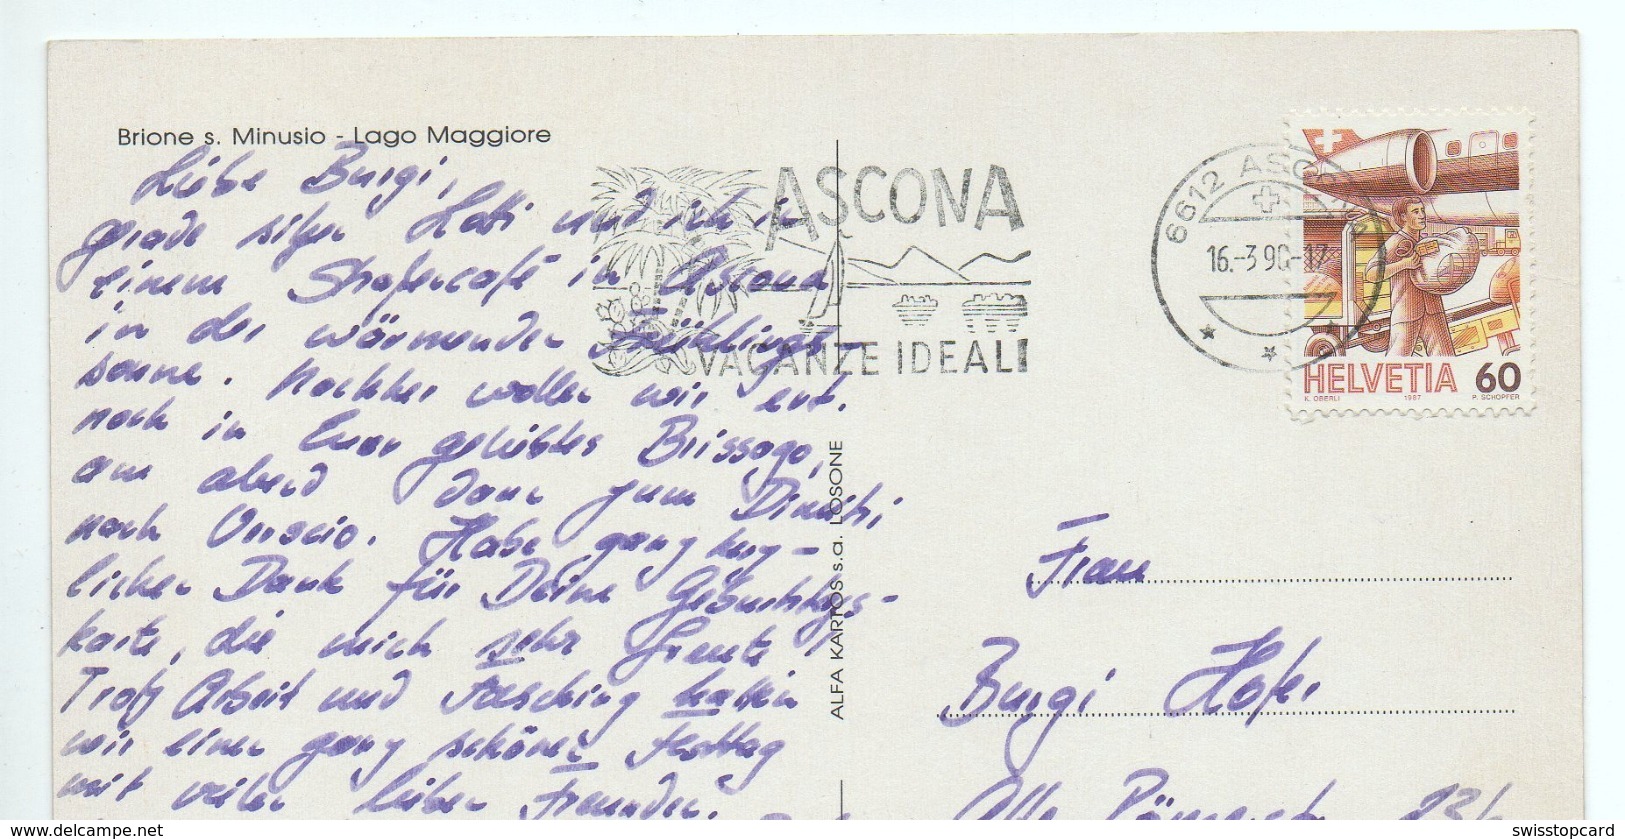 Brione s. Minusio - Lago Maggiore
Liebe Burgi,
gerade sitzen Hotti und ich in
einem Straßencafé in Ascona
in der wärmenden Frühlings-
sonne. Nachher wollen wir evt.
noch in Euer geliebtes Brissago,
am abend dann zum Dimitri
nach Verscio. Habe ganz herz-
lichen Dank für Deine Geburtstags-
karte, die mich sehr freute
Trotz Arbeit und Fasching hatten
wir einen ganz schönen Festtag
mit vielen lieben Freunden.
ASCONA
VACANZE IDEALI
6612 ASCONA
16.-3 90-17
HELVETIA 60
K. OBERLI 1987 P. SCHOPFER
ALFA KARTOS s.a. LOSONE
Frau
Burgi Hofer
Alte Römerstr. 23b
www.delcampe.net
swisstopcard